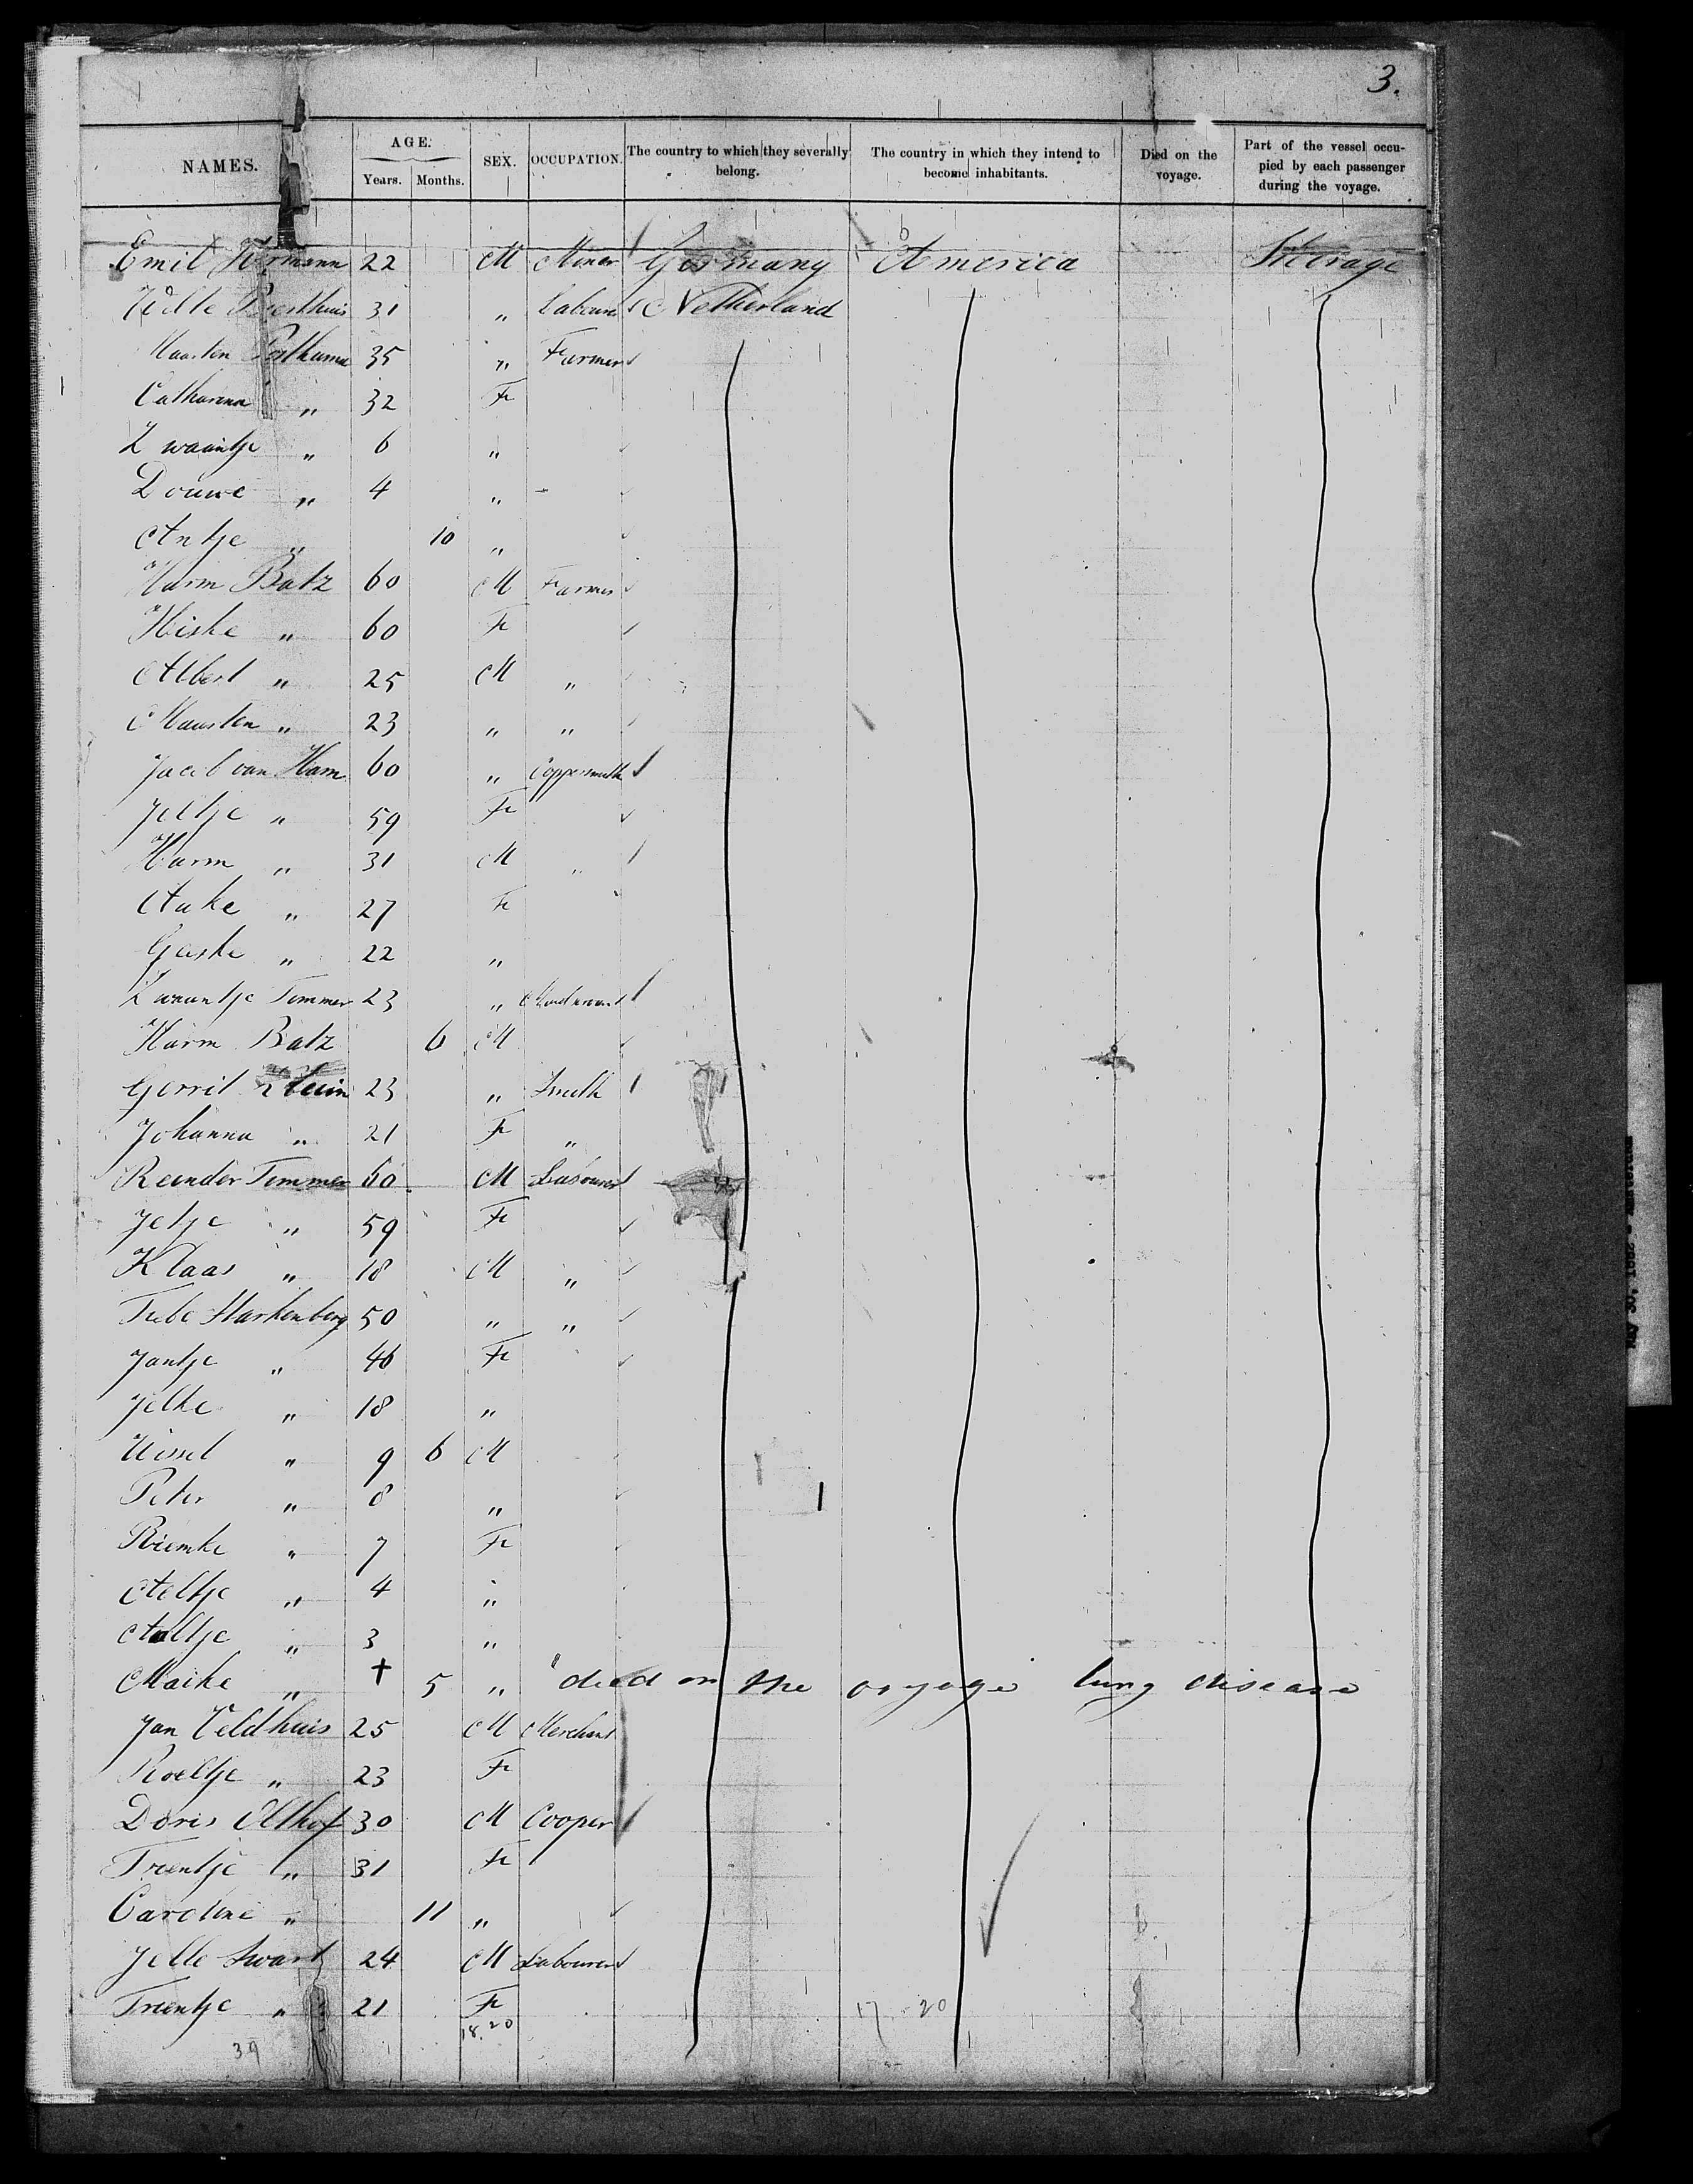 3.
NAMES. AGE. Years. Months. SEX. OCCUPATION. The country to which they severally belong. The country in which they intend to become inhabitants. Died on the voyage. Part of the vessel occupied by each passenger during the voyage.
Emil 22 M Miner Germany America Steerage
31 " Labourer Netherland
Maarten Posthuma 35 " Farmer
Catharina " 32 Fe
Zwaantje " 6 "
Douwe " 4 "
Antje " 10 "
Harm Batz 60 M Farmer
Hiske " 60 Fe
Albert " 25 M "
Maarten " 23 " "
Jacob van Ham 60 " Coppersmith
Jeltje " 59 Fe
Harm " 31 M "
Auke " 27 Fe
Geeske " 22 "
Zwaantje Timmer 23 "
Harm Batz 6 M
Gerrit 23 " Smith
Johanna " 21 Fe "
Reinder Timmer 60 M Labourer
Jetje " 59 Fe
Klaas " 18 M "
50 " "
Jantje " 46 Fe
Jelke " 18 "
9 6 M
Peter " 8 "
Riemke " 7 Fe
Aeltje " 4 "
Aaltje " 3 "
Maike " † 5 " died on the voyage lung disease
Jan Veldhuis 25 M Merchant
Roeltje " 23 Fe
Doris Olthof 30 M Cooper
Trientje " 31 Fe
Caroline " 11 "
Jelle Swart 24 M Labourer
Trientje " 21 Fe
18. 20
17 - 20
39